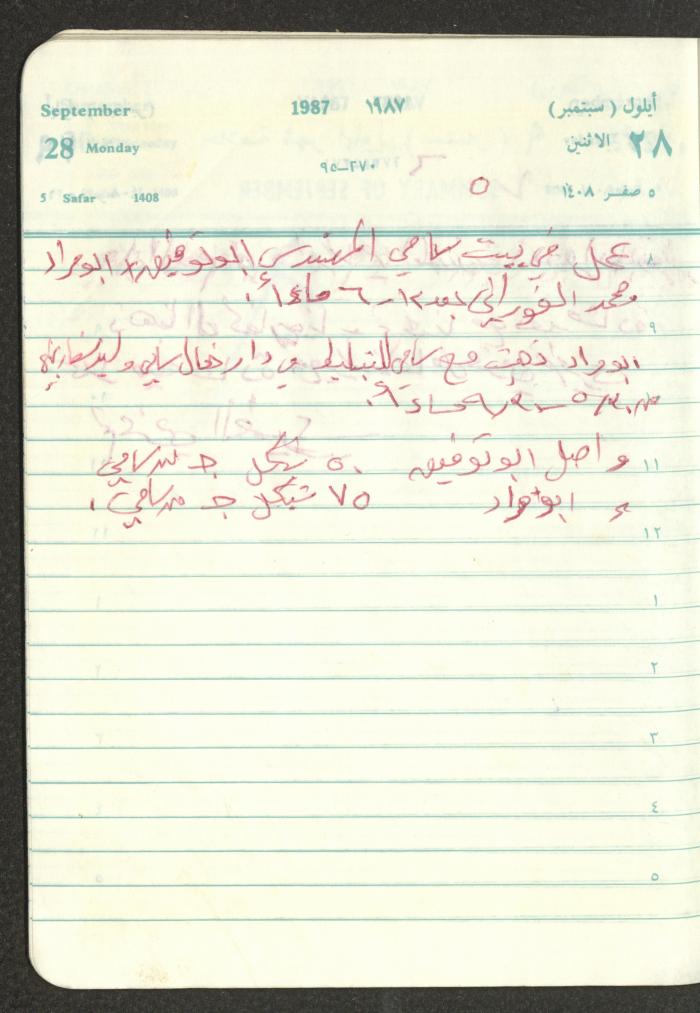 September 1987 ١٩٨٧ أيلول (سبتمبر)
28 Monday ٢٨ الاثنين
٢٧٠-٩٥
5 Safar 1408 ٥ صفر ١٤٠٨
٥
٨ عمل في بيت سامي المهندس ابو توفيق + ابو مراد
محمد الفور الي ٦ مساءاً.
٩
ابو مراد ذهب مع سامي للتبليط في دار خال سامي وليد
٥ ٩
١١ واصل ابو توفيق ٥٠ شيكل من سامي
ابو مراد ٧٥ شيكل من سامي.
١٢
١
٢
٣
٤
٥